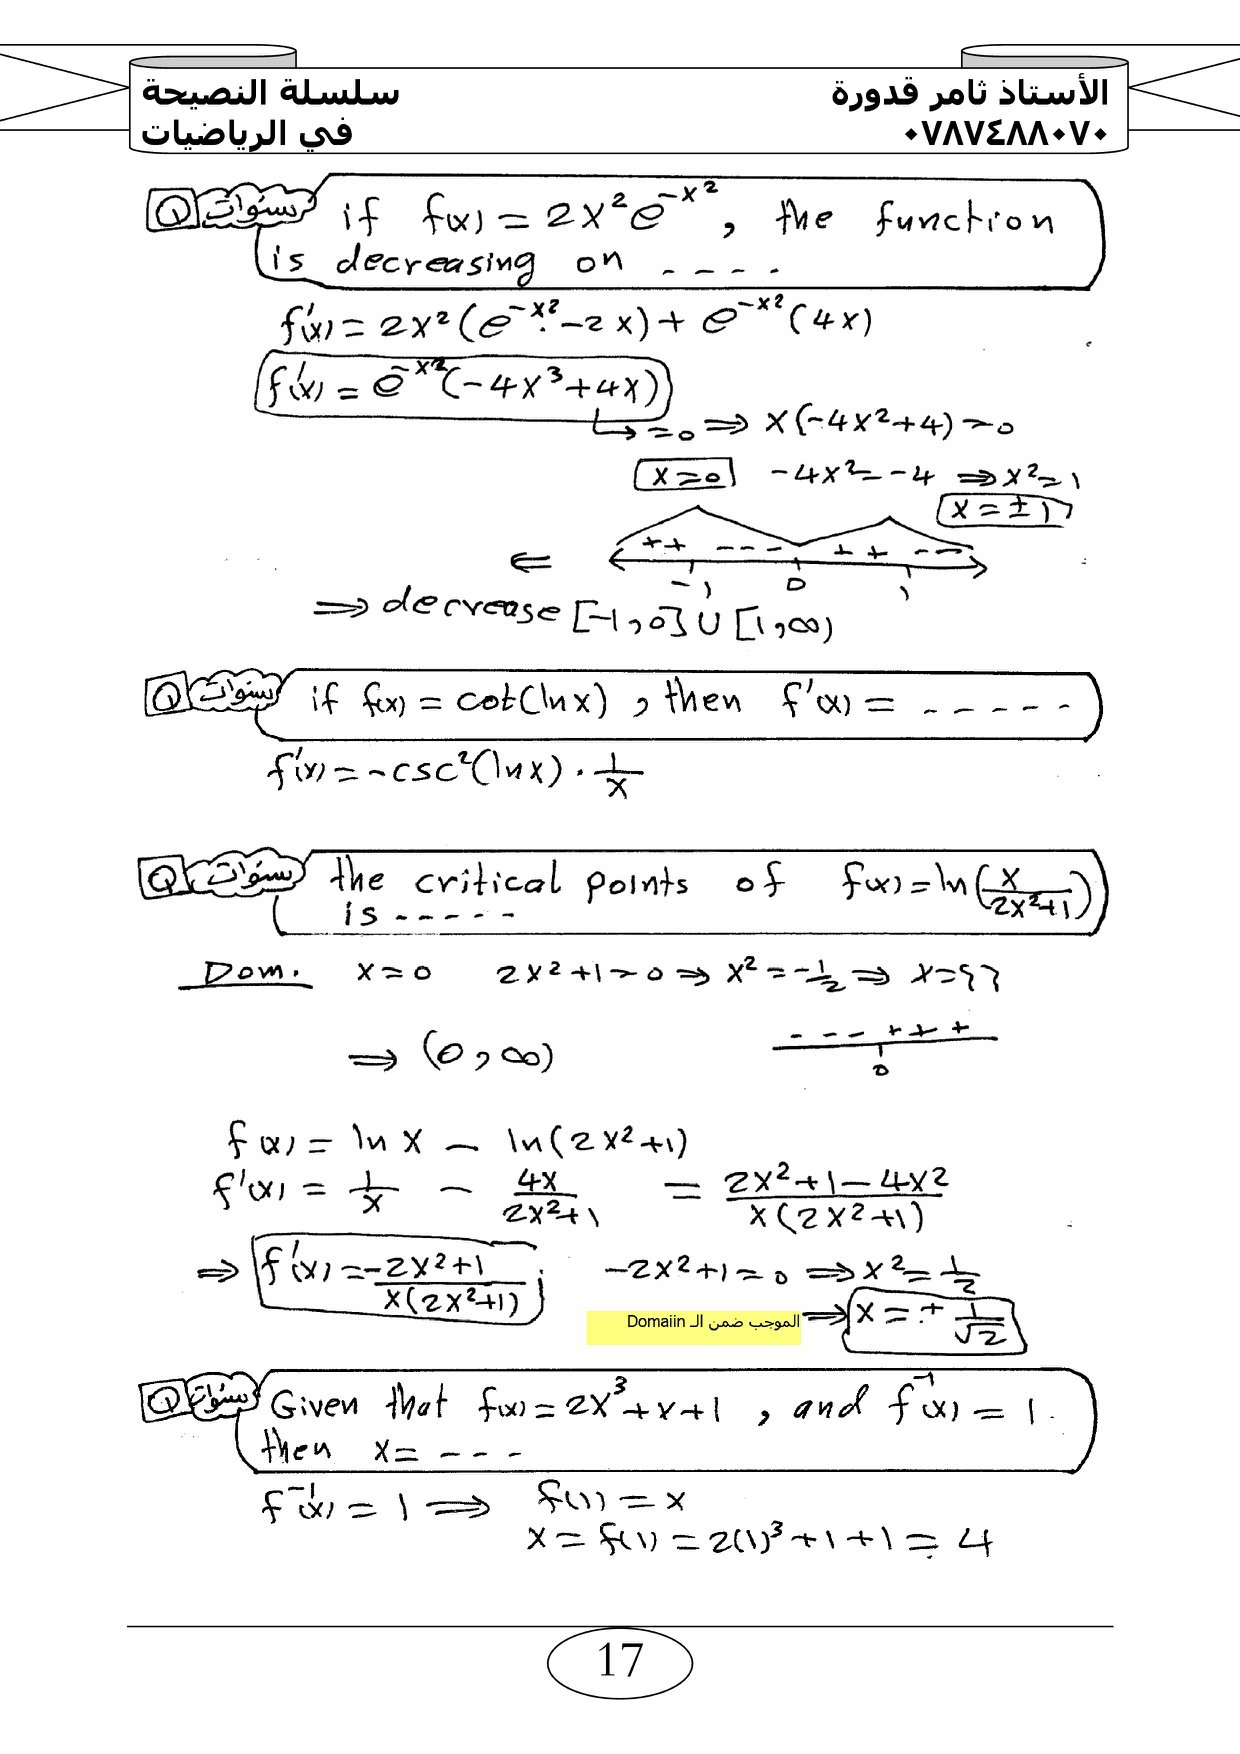 سلسلة النصيحة
في الرياضيات
الأستاذ ثامر قدورة
٠٧٨٧٤٨٨٠٧٠
Q سنوات if f(x) = 2x²e^{-x²}, the function
is decreasing on ----
f'(x) = 2x²(e^{-x²}·-2x) + e^{-x²}(4x)
f'(x) = e^{-x²}(-4x³+4x)
↳ =0 ⇒ x(-4x²+4)=0
x=0 -4x²=-4 ⇒ x²=1
x=±1
⇐ ++ --- ++ ---
-1 0 1
⇒ decrease [-1,0] ∪ [1,∞)
Q سنوات if f(x) = cot(lnx), then f'(x) = -----
f'(x) = -csc²(lnx) · 1/x
Q سنوات the critical points of f(x)=ln(x/(2x²+1))
is -----
Dom. x=0 2x²+1=0 ⇒ x²=-1/2 ⇒ x={}
⇒ (0,∞) --- +++
0
f(x) = lnx - ln(2x²+1)
f'(x) = 1/x - 4x/(2x²+1) = (2x²+1-4x²)/(x(2x²+1))
⇒ f'(x) = (-2x²+1)/(x(2x²+1)) ; -2x²+1=0 ⇒ x²=1/2
الموجب ضمن الـ Domaiin ⇒ x=± 1/√2
Q سنوات Given that f(x)=2x³+x+1, and f⁻¹(x)=1
then x= ---
f⁻¹(x) = 1 ⇒ f(1) = x
x = f(1) = 2(1)³+1+1 = 4
17